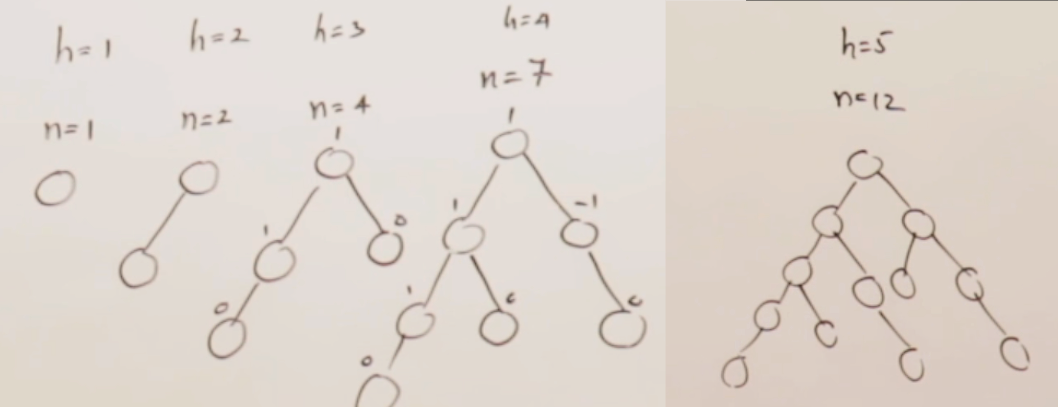 h=1
n=1
h=2
n=2
h=3
n=4
1
1
0
0
h=4
n=7
1
1
-1
1
0
h=5
n=12